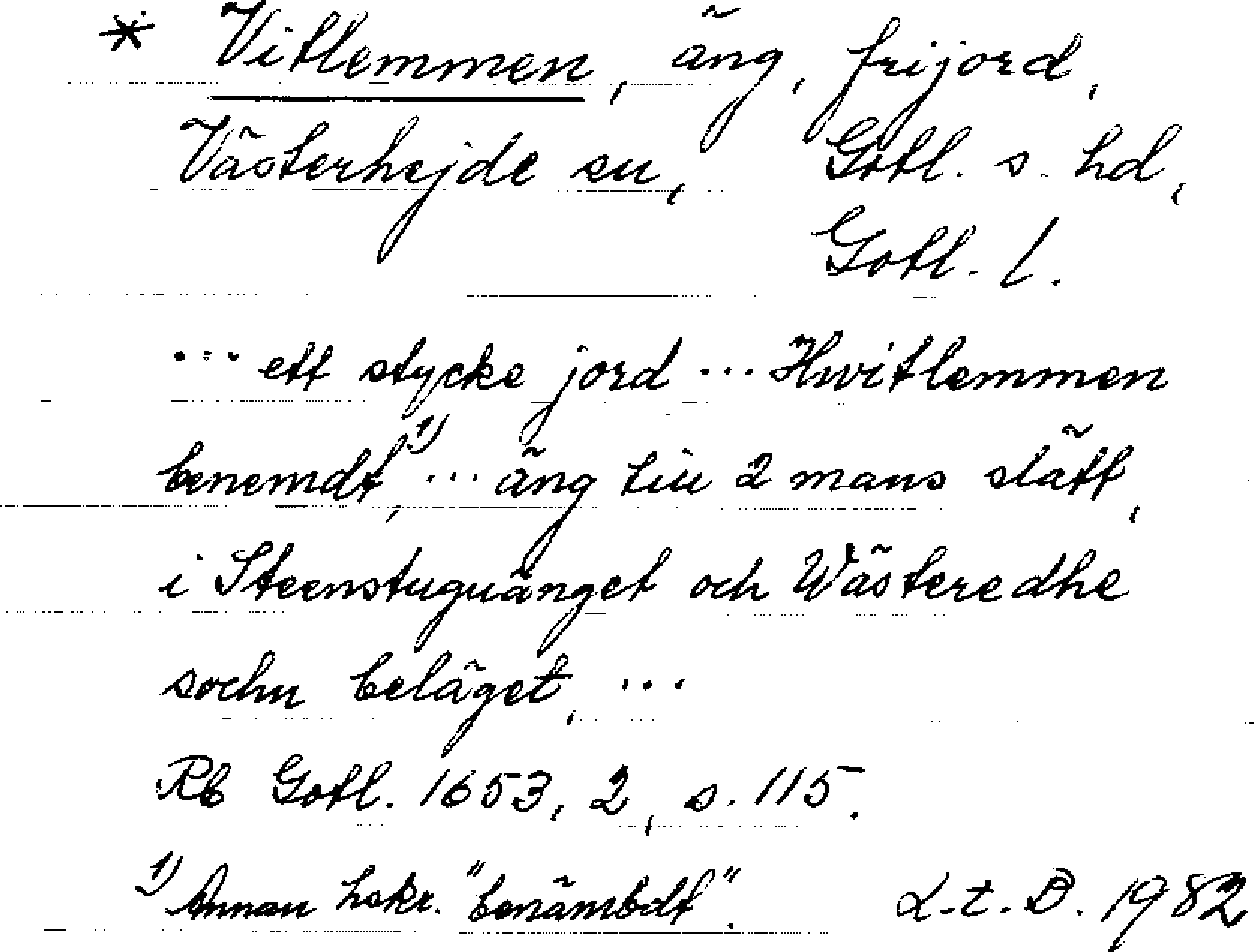 * Vitlemmen, äng, frijord,
Västerhejde sn, Gotl. s. hd,
Gotl. l.
... ett stycke jord ... Hwitlemmen
benemdt,¹⁾ ... äng till 2 mans slätt,
i Steenstuguänget och Wästeredhe
sochn beläget, ...
Rb Gotl. 1653, 2, s. 115.
¹⁾ Annan hskr. "benämbdt". L.t.B. 1982